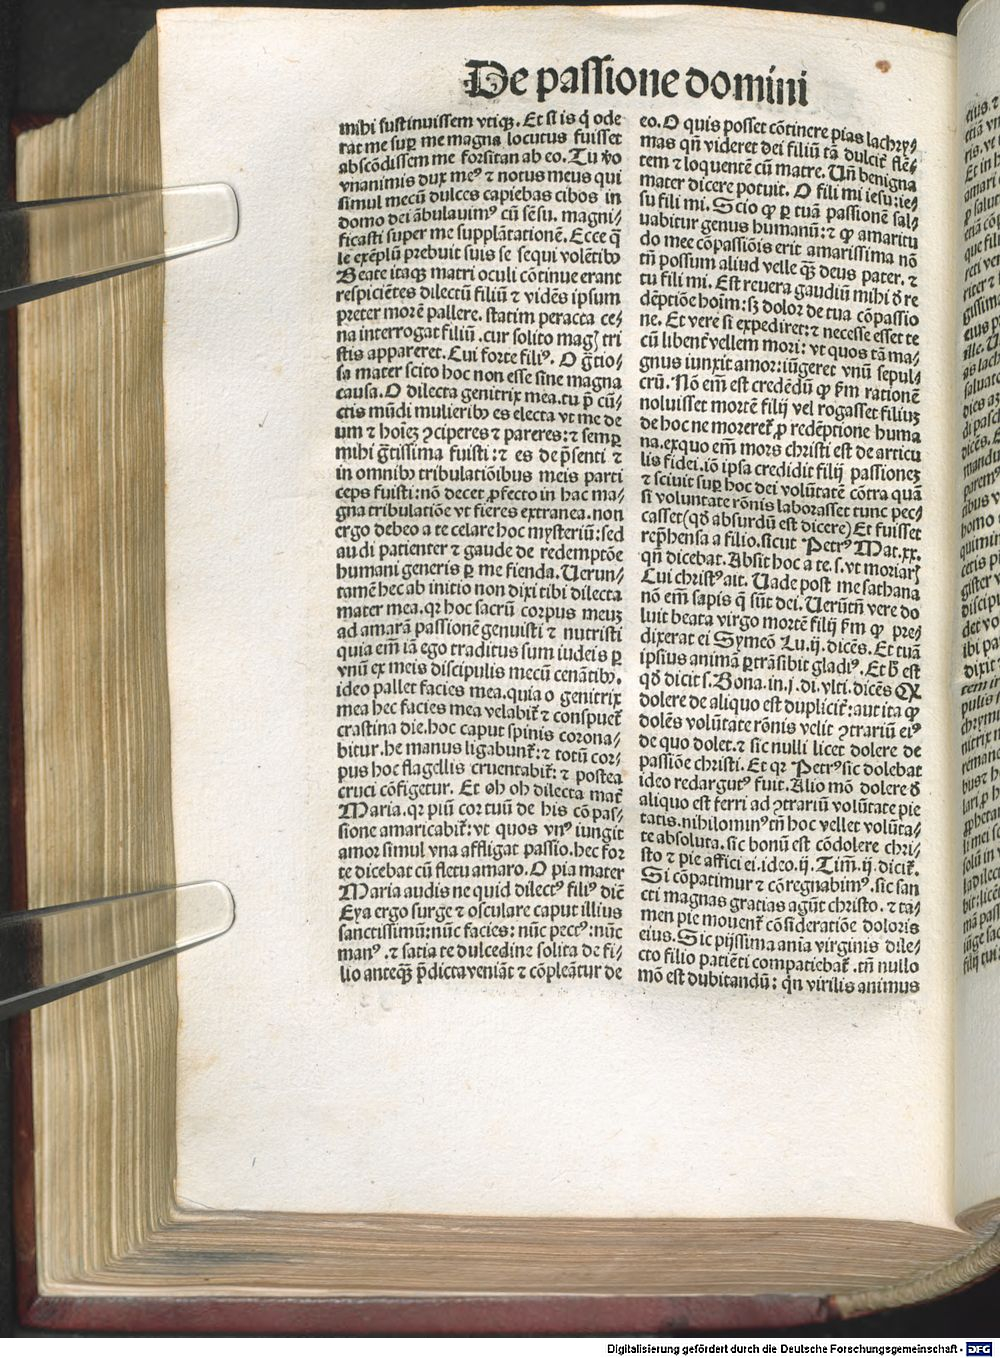 De passione domini
mihi sustinuissem vtiqꝫ. Et si is q̇ ode
rat me suꝑ me magna locutus fuisset
abscōdissem me forsitan ab eo. Tu v̄o
vnanimis dux meꝰ ⁊ notus meus qui
simul mecū dulces capiebas cibos in
domo dei ābulauimꝰ cū sēsu. magni⸗
ficasti super me supplātationē. Ecce q̄
le exēplū prebuit suis se sequi volētibꝰ
Beate itaqꝫ matri oculi cōtinue erant
respiciētes dilectū filiū ⁊ vidēs ipsum
preter morē pallere. statim peracta ce⸗
na interrogat filiū. cur solito magꝭ tri
stis appareret. Cui forte filiꝰ. O g̃tio⸗
sa mater scito hoc non esse sine magna
causa. O dilecta genitrix mea. tu p̄ cū⸗
ctis mūdi mulieribꝰ es electa vt me de
um ⁊ hoīeꝫ ꝯciperes ⁊ pareres: ⁊ semꝑ
mihi g̃tissima fuisti: ⁊ es de p̄senti ⁊
in omnibꝰ tribulatiōibus meis parti
ceps fuisti: nō decet ꝓfecto in hac ma⸗
gna tribulatiōe vt fieres extranea. non
ergo debeo a te celare hoc mysteriū: sed
audi patienter ⁊ gaude de redemptōe
humani generis ꝑ me fienda. Uerun⸗
tamē hec ab initio non dixi tibi dilecta
mater mea. qꝛ hoc sacrū corpus meuꝫ
ad amarā passionē genuisti ⁊ nutristi
quia em̄ iā ego traditus sum iudeis ꝑ
vnū ex meis discipulis mecū cenātibꝰ.
ideo pallet facies mea. quia o genitrix
mea hec facies mea velabit̃ ⁊ conspuet̃
crastina die. hoc caput spinis corona⸗
bitur. he manus ligabunt̃: ⁊ totū cor⸗
pus hoc flagellis cruentabit̃: ⁊ postea
cruci cōfigetur. Et oh oh dilecta mat̃
Maria. qꝛ piū cor tuū de his cō pas⸗
sione amaricabit̃: vt quos vnꝰ iungit
amor simul vna affligat passio. hec for
te dicebat cū fletu amaro. O pia mater
Maria audis ne quid dilectꝰ filiꝰ dic̄
Eya ergo surge ⁊ osculare caput illius
sanctissimū: nūc facies: nūc pectꝰ: nūc
manꝰ. ⁊ satia te dulcedine solita de fi⸗
lio anteqꝫ p̄dicta veniāt ⁊ cōpleātur de
eo. O quis posset cōtinere pias lachry⸗
mas qn̄ videret dei filiū tā dulcit̃ flē⸗
tem ⁊ loquentē cū matre. Un̄ benigna
mater dicere potuit. O fili mi iesu: ie⸗
su fili mi. Scio ꝙ ꝑ tuā passionē sal⸗
uabitur genus humanū: ⁊ ꝙ amaritu
do mee cōpassiōis erit amarissima nō
tn̄ possum aliud velle qꝫ deus pater. ⁊
tu fili mi. Est reuera gaudiū mihi ð re
dēptiōe hoīm: sꝫ dolor de tua cōpassio
ne. Et vere si expediret: ⁊ necesse esset te
cū libent̃ vellem mori: vt quos tā ma⸗
gnus iunxit amor: iūgeret vnū sepul⸗
crū. Nō em̄ est credēdū ꝙ fm rationē
noluisset mortē filij vel rogasset filiuꝫ
de hoc ne moreret̃ ꝓ redēptione huma
na. exquo em̄ mors christi est de articu
lis fidei. iō ipsa credidit filij passioneꝫ
⁊ sciuit suꝑ hoc dei volūtatē cōtra quā
si voluntate rōnis laborasset tunc pec⸗
casset (qð absurdū est dicere) Et fuisset
rep̄hensa a filio. sicut Petrꝰ Mat. xx.
qn̄ dicebat. Absit hoc a te. s. vt moriarꝭ
Cui christꝰ ait. Uade post me sathana
nō em̄ sapis q̄ sūt dei. Uerūtn̄ vere do
luit beata virgo mortē filij fm ꝙ pre⸗
dixerat ei Symeō Lu. ij. dicēs. Et tuā
ipsius animā ꝑtrāsibit gladiꝰ. Et h̄ est
qð dicit s. Bona. in. j. di. vlti. dicēs Qꝛ
dolere de aliquo est duplicit̃: aut ita ꝙ
dolēs volūtate rōnis velit ꝯtrariū eiꝰ
de quo dolet. ⁊ sic nulli licet dolere de
passiōe christi. Et qꝛ Petrꝰ sic dolebat
ideo redargutꝰ fuit. Alio mō dolere ð
aliquo est ferri ad ꝯtrariū volūtate pie
tatis. nihilominꝰ tn̄ hoc vellet volūta⸗
te absoluta. sic bonū est cōdolere chri⸗
sto ⁊ pie affici ei. ideo. ij. Tim̄. ij. dicit̃.
Si cōpatimur ⁊ cōregnabimꝰ. sic san
cti magnas gratias agūt christo. ⁊ ta⸗
men pie mouent̃ cōsideratiōe doloris
eius. Sic pijssima anīa virginis dile⸗
cto filio patiēti compatiebat̃. tn̄ nullo
mō est dubitandū: qn̄ virilis animus
Digitalisierung gefördert durch die Deutsche Forschungsgemeinschaft - DFG